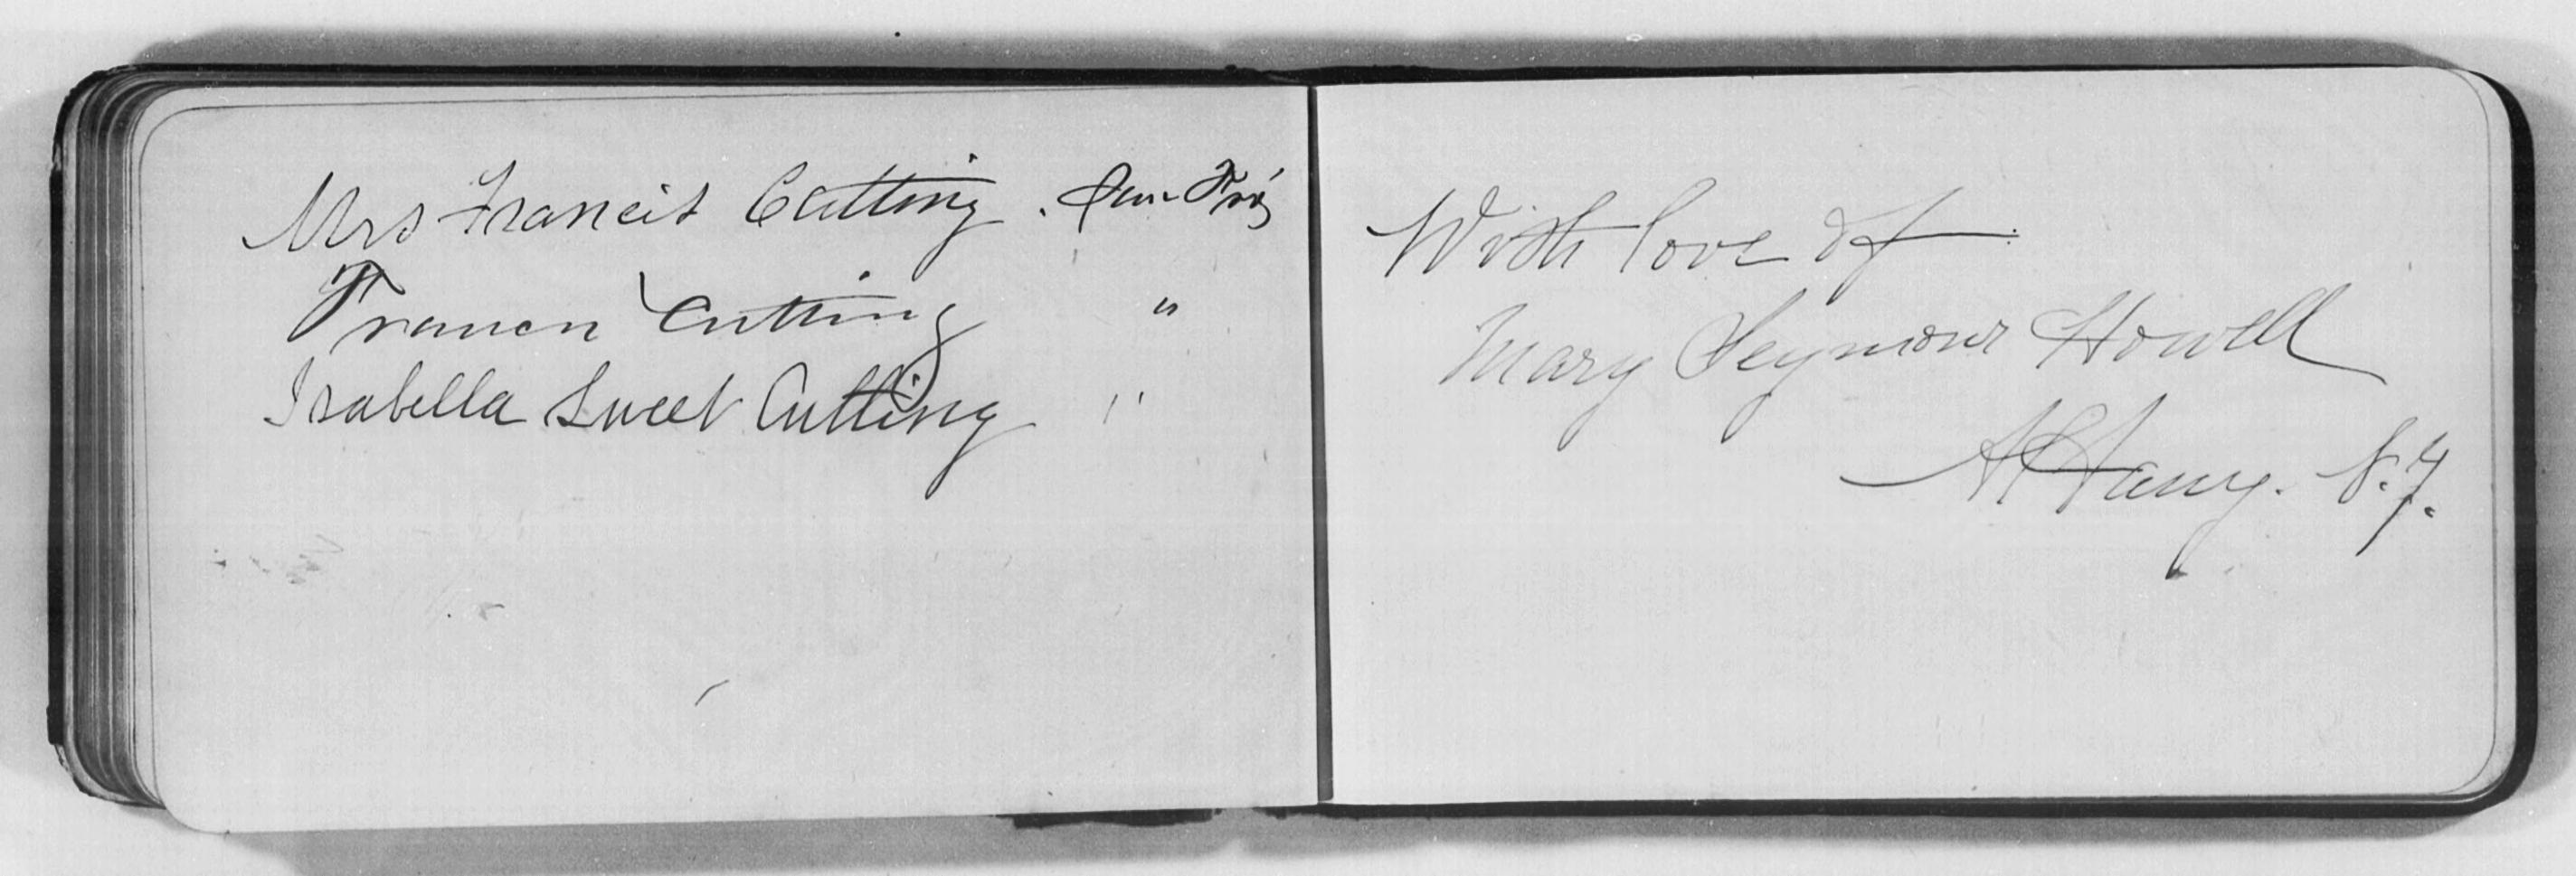 Mrs Francis Cutting. San Fris
Francis Cutting "
Isabella Sweet Cutting "
With love of
Mary Seymour Howell
Albany. N.Y.